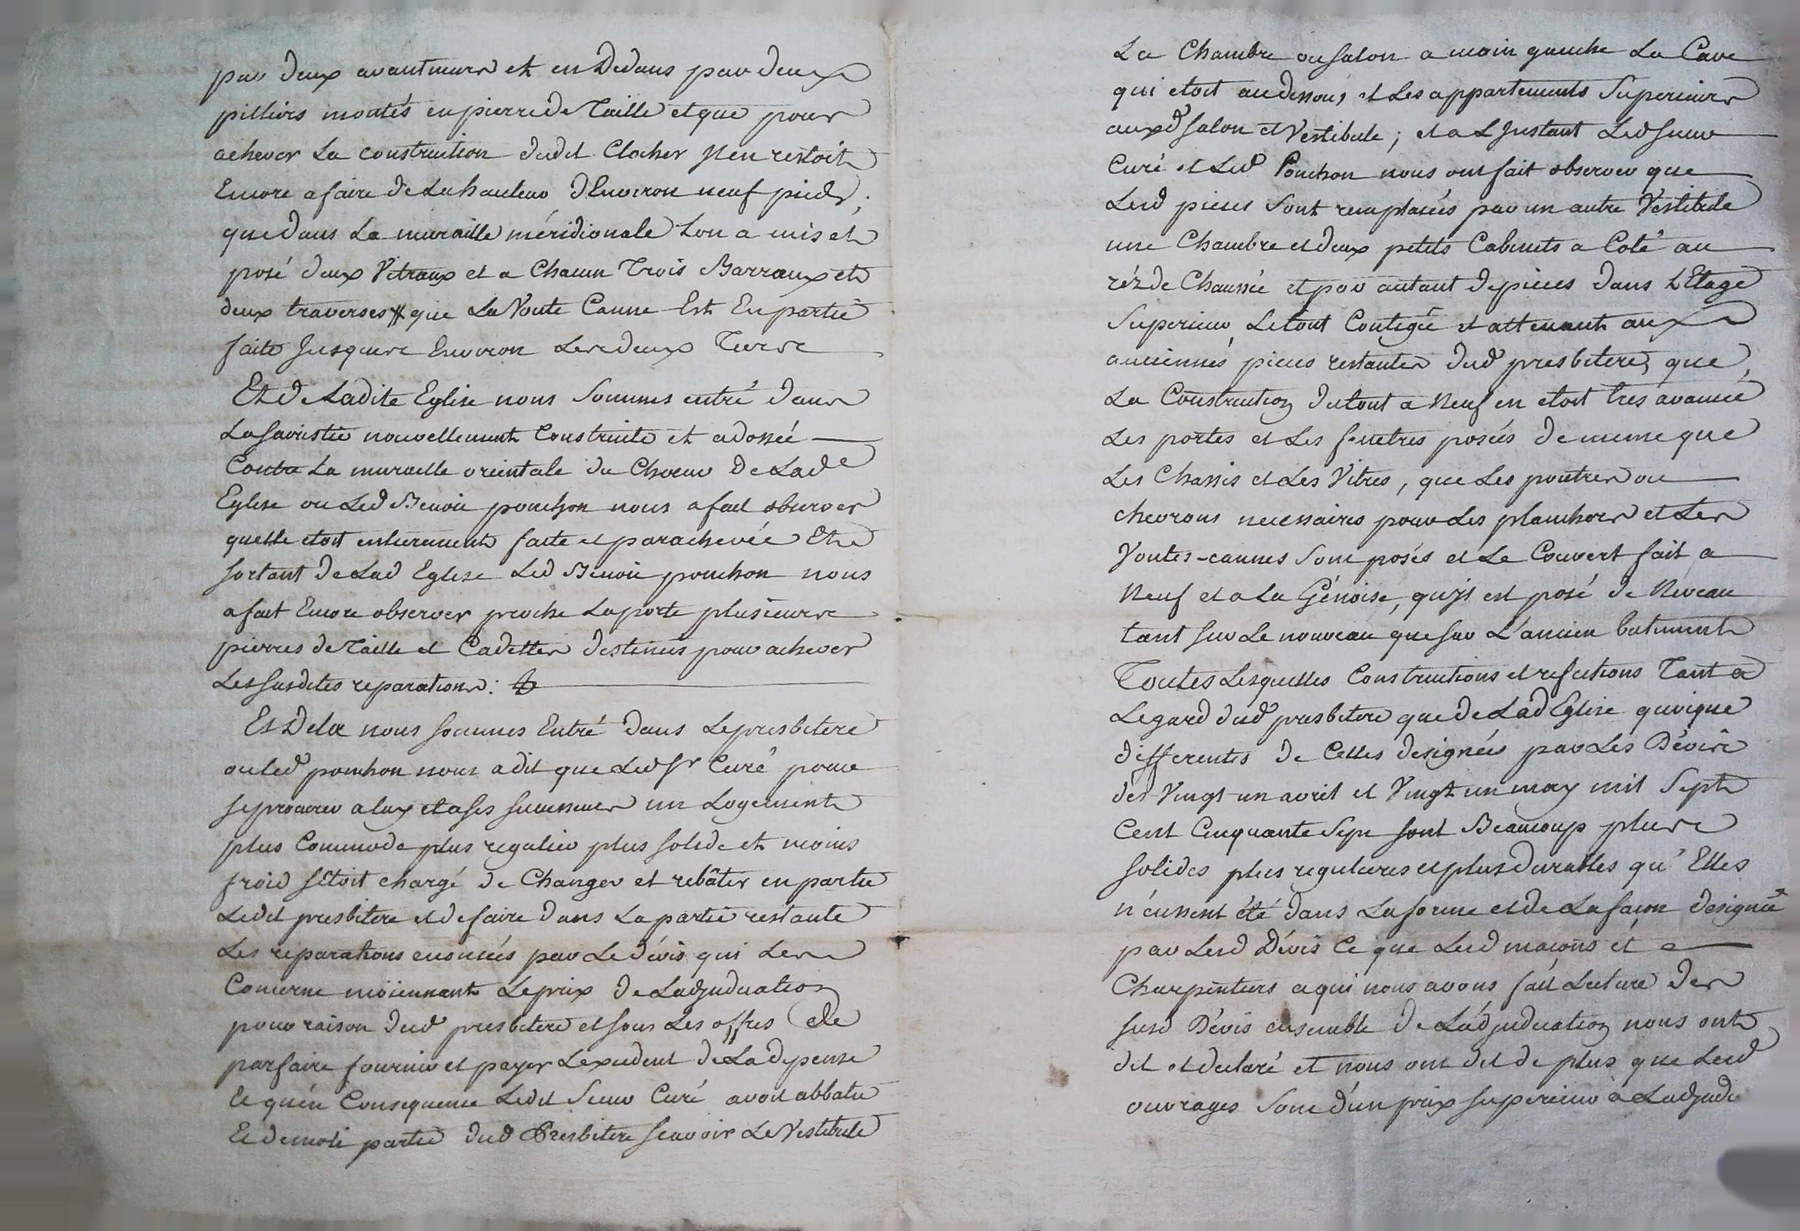 par deux avantmurs et en Dedans par deux
pilliers montés en pierre de Taille et que pour
achever La construction dudit Clocher Il en restoit
Encore a faire de La hauteur d'Environ neuf pieds;
que Dans La muraille méridionale Lon a mis et
posé deux Vitraux et a Chacun Trois Barreaux et
deux traverses que La Voute Canne Est En partie
faite Jusques Environ Les deux Tiers
Et de Ladite Eglise nous Sommes entré dans
La sacristie nouvellement Construite et adossée
Contre La muraille orientale du Choeur de Lade
Eglise ou Led Benoit ponchon nous a fait observer
quelle etoit entierement faite et parachevée Et
sortant de Lad Eglise Led Benoit ponchon nous
a fait Encore observer proche La porte plusieurs
pierres de Taille et Cadettes destinées pour achever
Les susdites reparations:
Et Dela nous sommes Entré dans Le presbitere
ou led ponchon nous a dit que Led Sr Curé pour
se procurer a luy et a ses successeurs un Logement
plus Commode plus regulier plus solide et moins
froid s'Etoit chargé de Changer et rebâtir en partie
Ledit presbitere et de faire dans La partie restante
Les reparations enoncées par Le dévis qui Les
Concerne moiennant Le prix de Ladjudication
pour raison dud presbitere et sous Les offres de
parfaire fournir et payer L'exedent de La depense
Et qu'en Consequence Ledit Sieur Curé avoit abbatu
Et demoli partie dud Presbitere scavoir Le Vestibule
La Chambre ou salon a main gauche La Cave
qui etoit au dessous et Les appartements Superieurs
auxd salon et Vestibule; et a L'Instant Led sieur
Curé et Led Ponchon nous ont fait observer que
Lesd pieces sont remplacées par un autre Vestibule
une Chambre et deux petits Cabinets a Coté au
réz de Chaussée et par autant de pieces dans L'Etage
Superieur Le tout Contigu et attenant aux
anciennes pieces restantes dud presbitere, que
La Construction du tout a Neuf en etoit tres avancée
Les portes et Les fenetres posées de meme que
Les Chassis et Les Vitres, que Les poutres ou
chevrons necessaires pour Les planchers et Les
Voutes-cannes sont posés et Le Couvert fait a
Neuf et a La Génoise, qu'Il est posé de Niveau
tant sur Le nouveau que sur L'ancien batiment
Toutes Lesquelles Constructions et refections Tant a
Legard dud presbitere que de Lad Eglise quoique
differentes de Celles designées par Les Dévis
des Vingt un avril et Vingt un may mil Sept
Cent Cinquante Sept sont Beaucoup plus
solides plus regulieres et plus durables qu'Elles
n'eussent été dans La forme et de La façon designée
par Lesd Dévis Ce que Lesd maçons et
Charpentiers a qui nous avons fait Lecture des
susd Dévis ensemble de L'adjudication nous ont
dit et declaré et nous ont dit de plus que Lesd
ouvrages Sont d'un prix superieur à Ladjudi